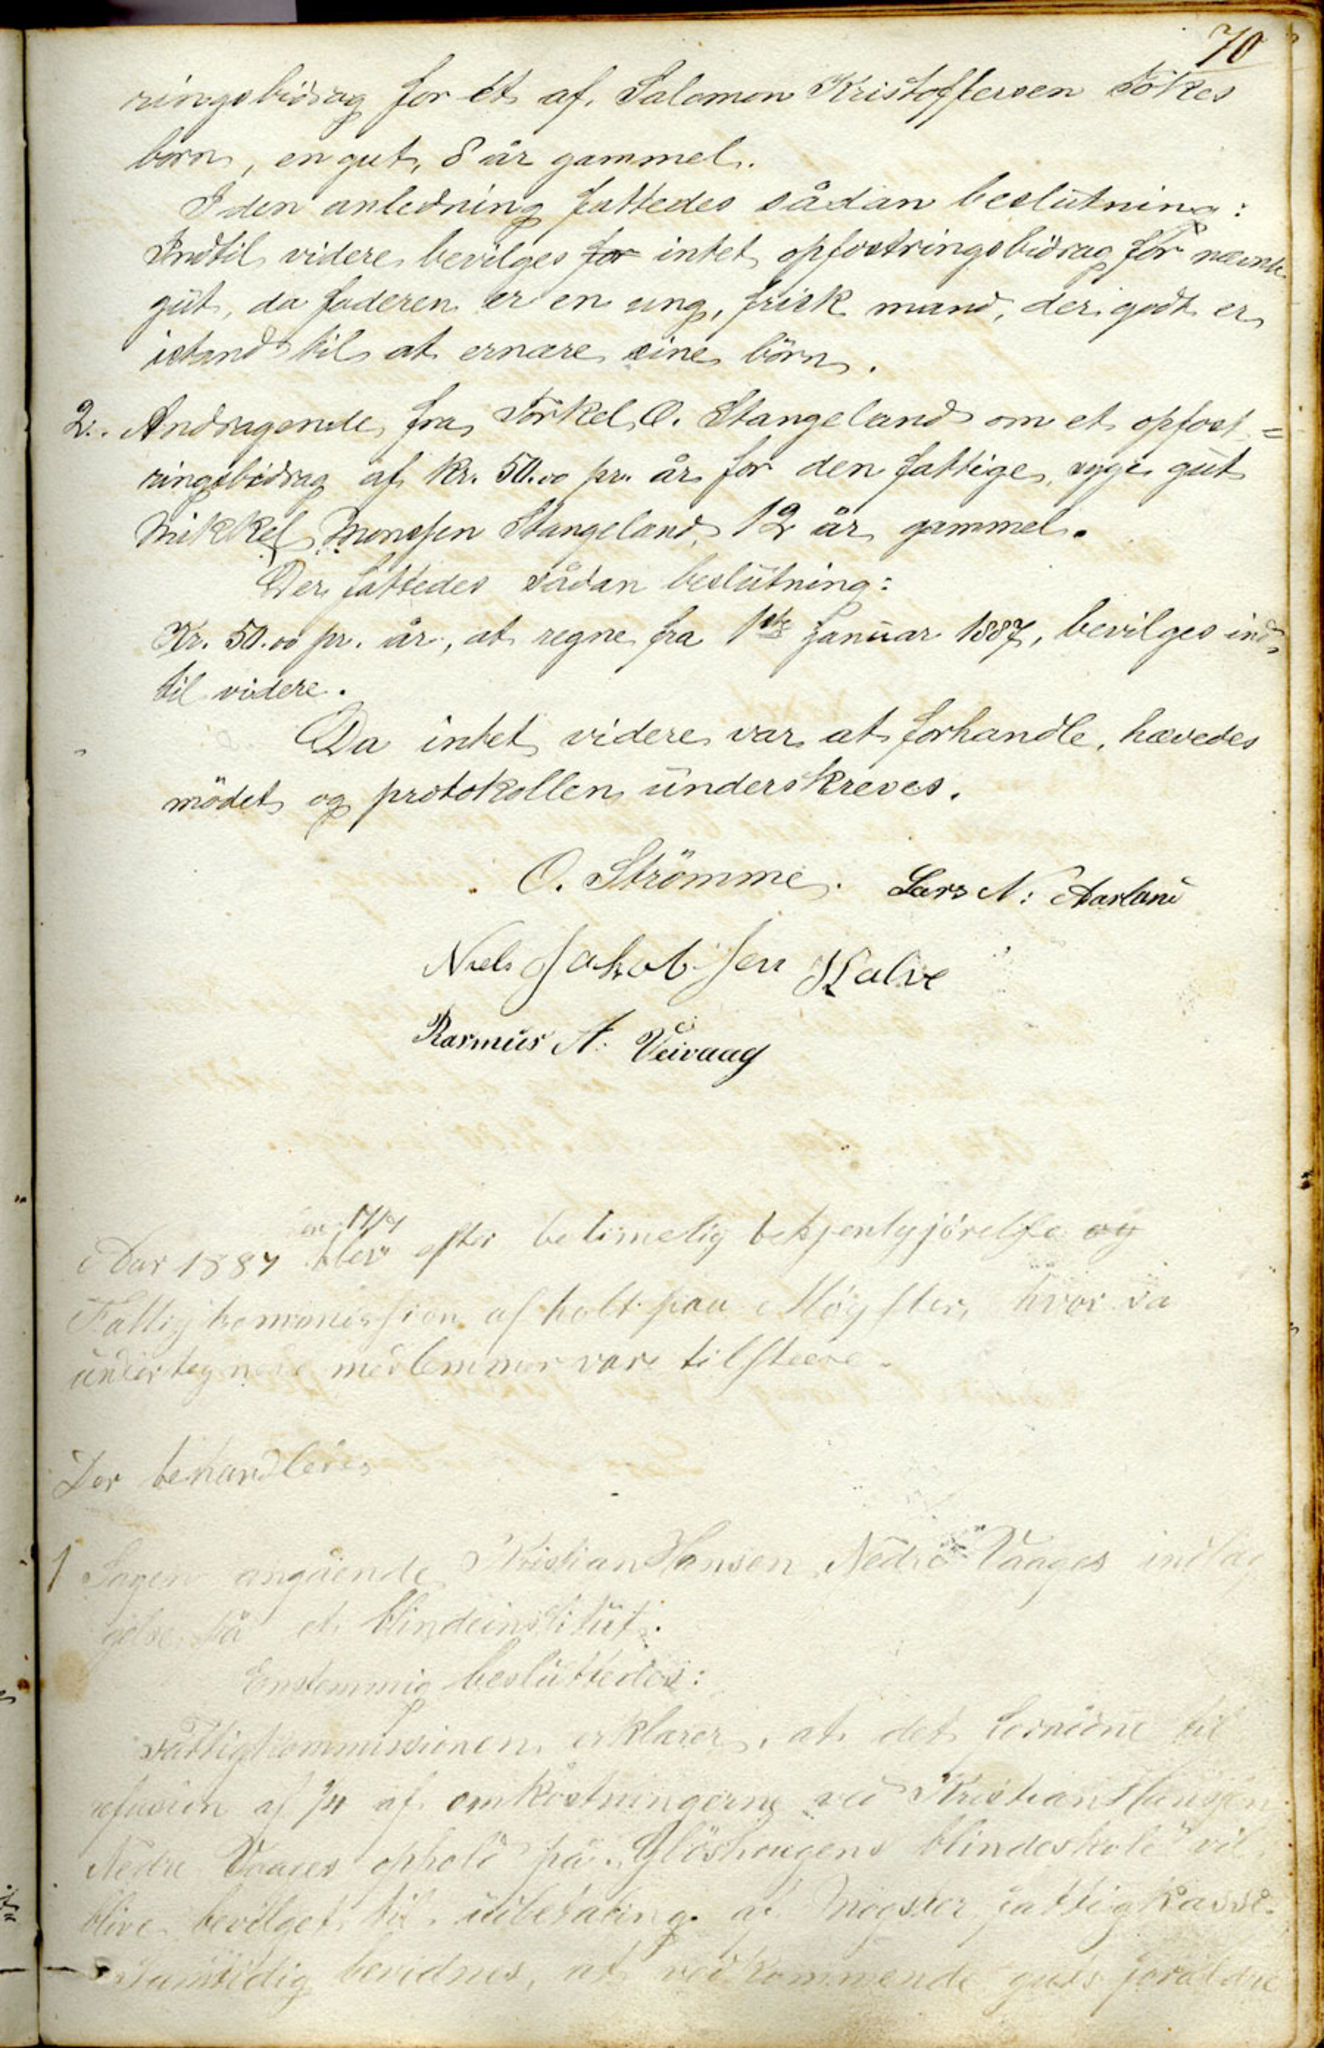 70
ringsbidrag for et af Salomon Kristoffersen Tökes
børn, en gut, 8 år gammel.
I den anledning fattedes sådan beslutning:
Indtil videre bevilges for intet opfostringsbidrag for nævnte
gut, da faderen er en ung, frisk mand, der godt er
istand til at ernære sine börn.
2. Andragende fra Törkel O. Stangeland om et opfost=
ringsbidrag af kr. 50.00 pr. år for den fattige, syge gut
Mikkel Monssen Stangeland, 12 år gammel.
Der fattedes sådan beslutning:
Kr. 50.00 pr. år, at regne fra 1ste Januar 1887, bevilges ind=
til videre.
Da intet videre var at forhandle, hævedes
mödet og protokollen underskreves.
O. Strömme. Lars N: Aarland
Niels Jakobsen Kalve
Rasmus A. Veivaag
17/7
Aar 1887 blev efter betimelig bekjentgjörelse og
Fattigkommission afholt paa Møgster, hvor da
undertegnede medlemmer vare tilstede.
Der behandledes
1 Sagen angående Kristian Hansen Nedre Vaages indlæg
gelse på et blindeinstitut.
Enstemmig besluttedes:
Fattigkommissionen erklærer, at det fornödne til
refusion af 1/4 af omkostningerne ved Kristian Hansen
Nedre Vaages ophold på "Glöshougens blindeskole" vil
blive bevilget til udbetaling af Møgster fattigkasse.
Samtidig bevidnes, at vedkommende guts forældre